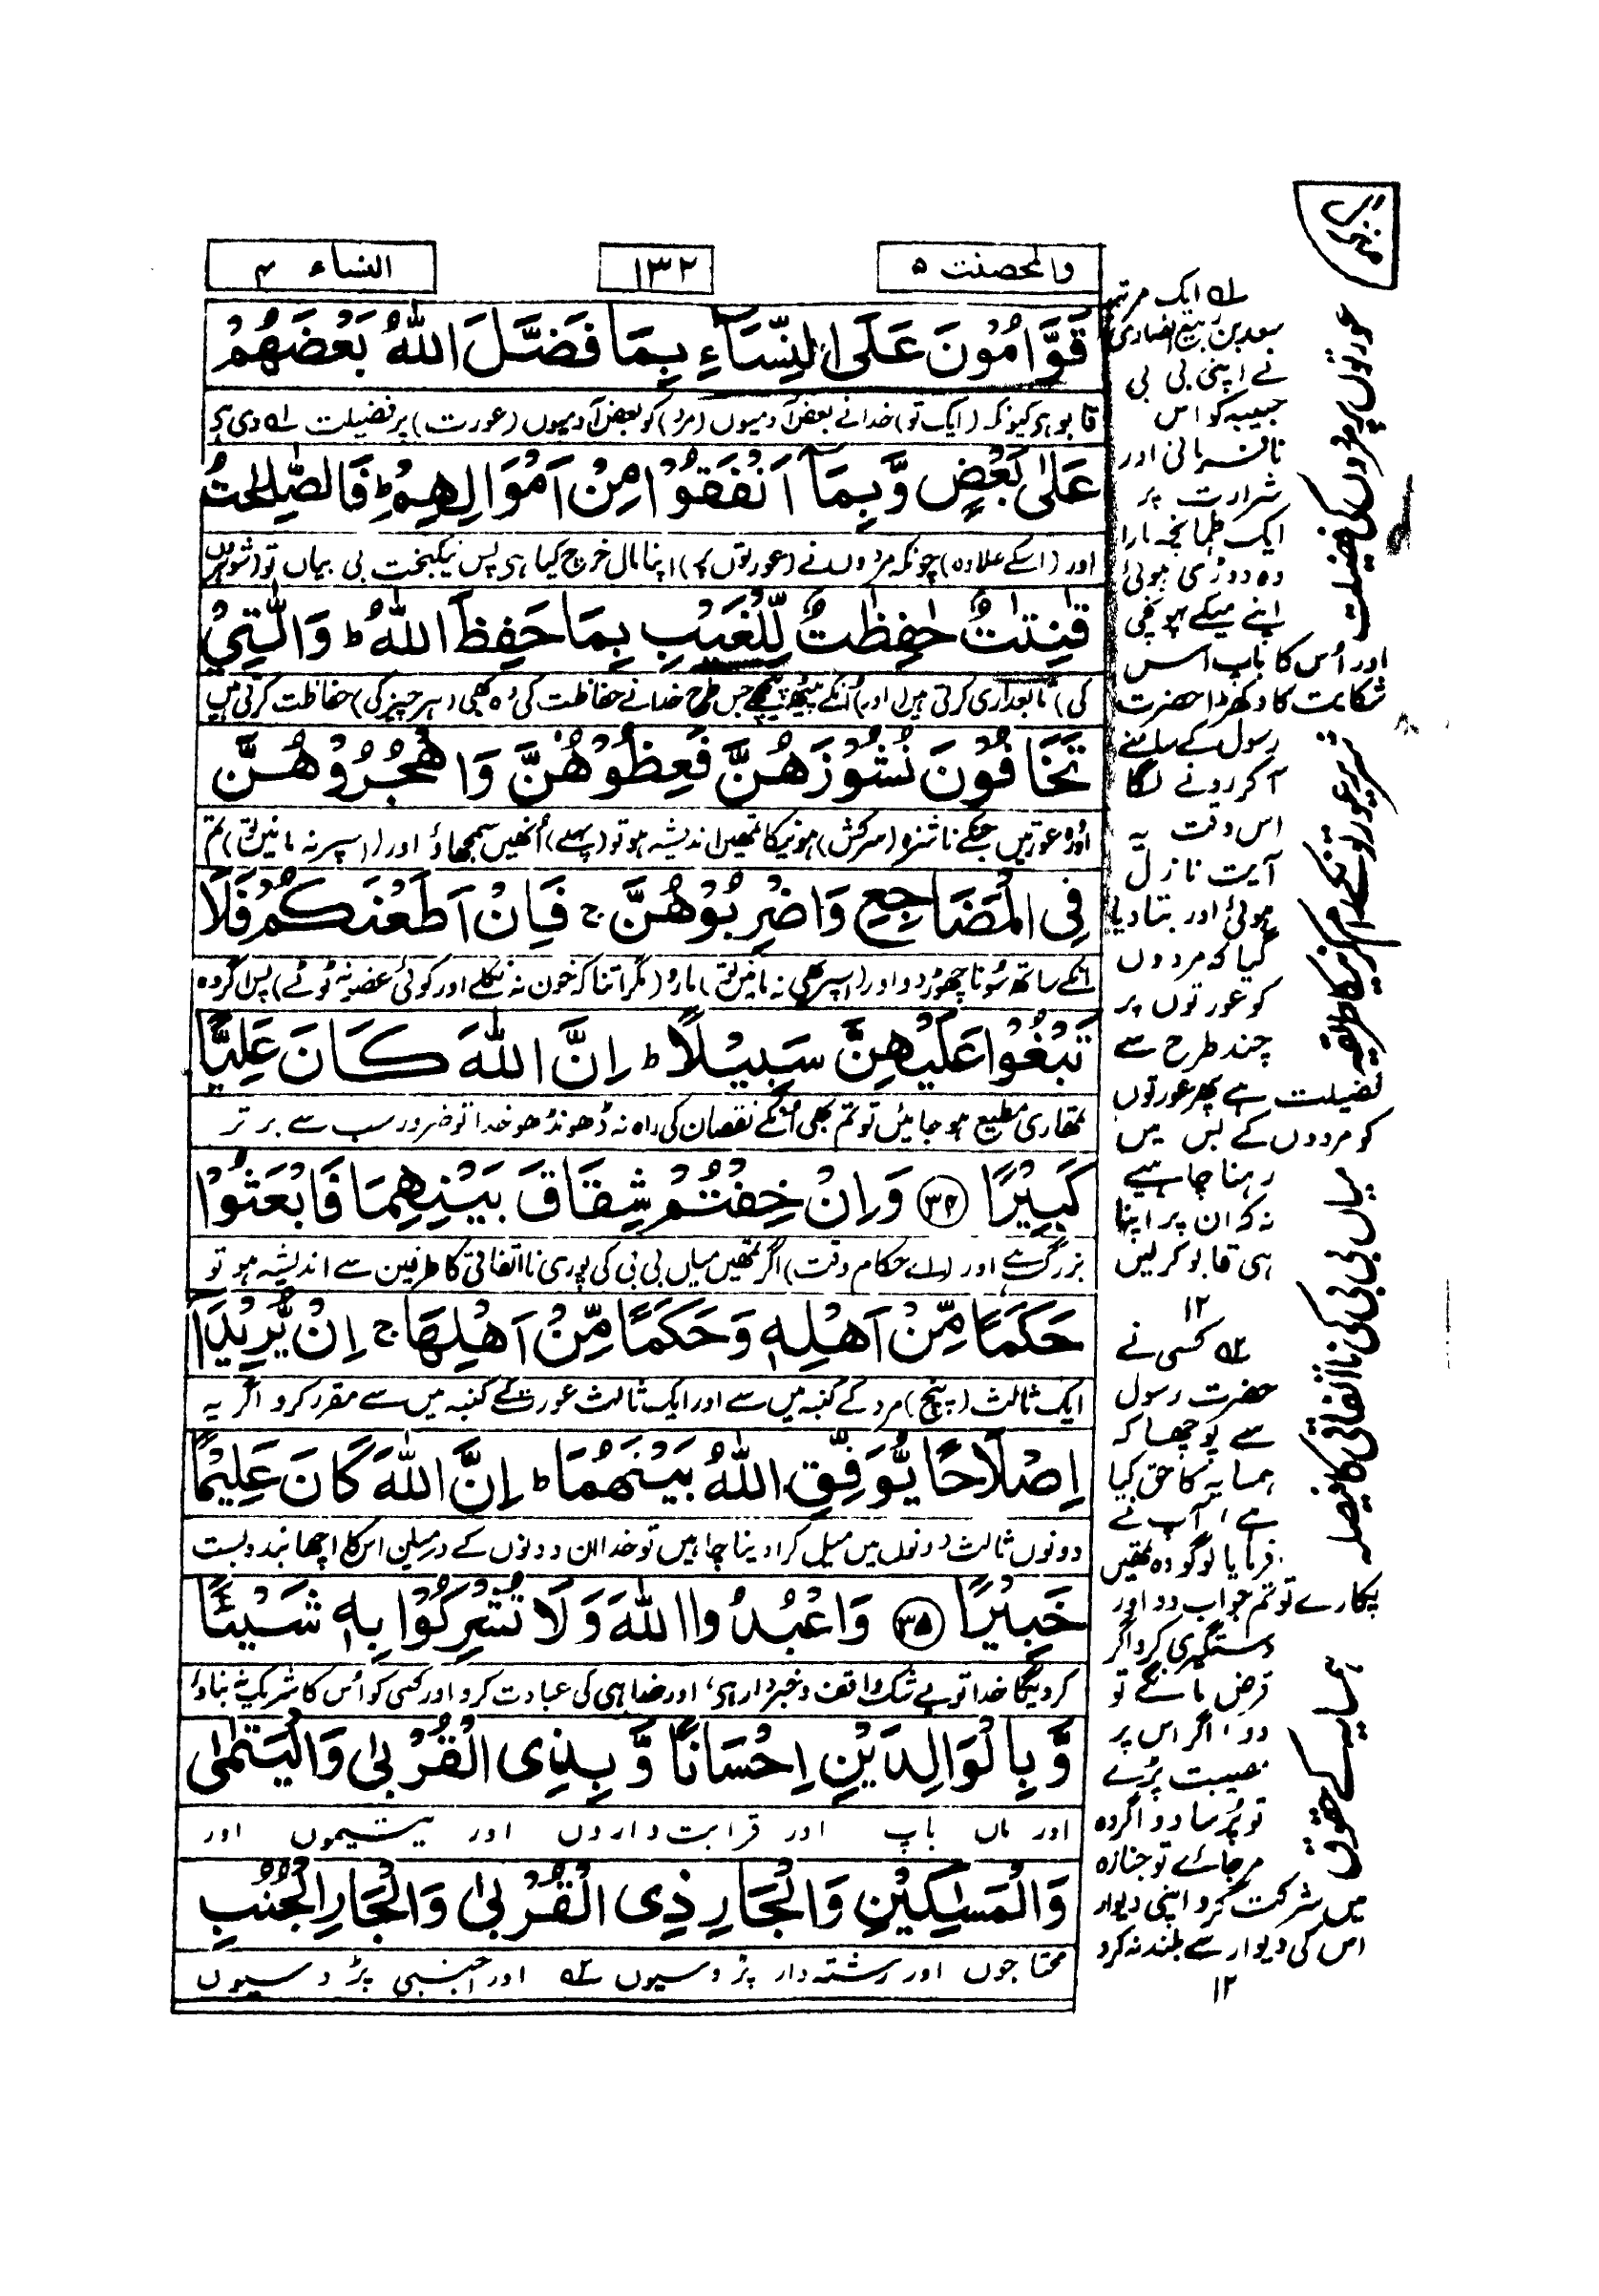 والمحصنت ۵
۱۳۲
النساء ۴
قَوَّامُوْنَ عَلَى النِّسَآءِ بِمَا فَضَّلَ اللّٰهُ بَعْضَهُمْ
قابو ہے کیونکہ (ایک تو) خدا نے بعض آدمیوں (مرد) کو بعض آدمیوں (عورت) پر فضیلت ۱ے دی ہے
عَلٰى بَعْضٍ وَّبِمَآ اَنْفَقُوْا مِنْ اَمْوَالِهِمْ ؕ فَالصّٰلِحٰتُ
اور (اسکے علاوہ) چونکہ مردوں نے (عورتوں پر) اپنا مال خرچ کیا ہے پس نیکبخت بی بیاں تو (شوہروں
قٰنِتٰتٌ حٰفِظٰتٌ لِّلْغَيْبِ بِمَا حَفِظَ اللّٰهُ ؕ وَالّٰتِيْ
کی) تابعداری کرتی ہیں (اور) اُنکے پیٹھ پیچھے جس طرح خدا نے حفاظت کی وہ بھی (ہر چیز کی) حفاظت کرتی ہیں
تَخَافُوْنَ نُشُوْزَهُنَّ فَعِظُوْهُنَّ وَاهْجُرُوْهُنَّ
اور وہ عورتیں جنکے ناشزہ (سرکش) ہونیکا تمھیں اندیشہ ہو تو (پہلے) اُنھیں سمجھاؤ اور (اسپر نہ مانیں تو) تم
فِي الْمَضَاجِعِ وَاضْرِبُوْهُنَّ ۚ فَاِنْ اَطَعْنَكُمْ فَلَا
انکے ساتھ سونا چھوڑ دو اور (اسپر بھی نہ مانیں تو) مارو (مگر اتنا کہ خون نہ نکلے اور کوئی عضو نہ ٹوٹے) پس اگر وہ
تَبْغُوْا عَلَيْهِنَّ سَبِيْلًا ؕ اِنَّ اللّٰهَ كَانَ عَلِيًّا
تمھاری مطیع ہو جائیں تو تم بھی اُنکے نقصان کی راہ نہ ڈھونڈھو خدا تو ضرور سب سے برتر
كَبِيْرًا ۳۴ وَاِنْ خِفْتُمْ شِقَاقَ بَيْنِهِمَا فَابْعَثُوْا
بزرگ ہے اور (اے حکام وقت) اگر تمھیں میاں بی بی کی پوری نااتفاقی کا طرفین سے اندیشہ ہو تو
حَكَمًا مِّنْ اَهْلِهٖ وَحَكَمًا مِّنْ اَهْلِهَا ۚ اِنْ يُّرِيْدَآ
ایک ثالث (پنچ) مرد کے کنبہ میں سے اور ایک ثالث عورت کے کنبہ میں سے مقرر کرو اگر یہ
اِصْلَاحًا يُّوَفِّقِ اللّٰهُ بَيْنَهُمَا ؕ اِنَّ اللّٰهَ كَانَ عَلِيْمًا
دونوں ثالث دونوں میں میل کرا دینا چاہیں تو خدا ان دونوں کے درمیان اس کا اچھا بندوبست
خَبِيْرًا ۳۵ وَاعْبُدُوا اللّٰهَ وَلَا تُشْرِكُوْا بِهٖ شَيْئًا
کر دیگا خدا تو بے شک واقف و خبردار ہے، اور خدا ہی کی عبادت کرو اور کسی کو اُس کا شریک نہ بناؤ
وَّبِالْوَالِدَيْنِ اِحْسَانًا وَّبِذِى الْقُرْبٰى وَالْيَتٰمٰى
اور ماں باپ اور قرابت داروں اور یتیموں اور
وَالْمَسٰكِيْنِ وَالْجَارِ ذِى الْقُرْبٰى وَالْجَارِ الْجُنُبِ
محتاجوں اور رشتہ دار پڑوسیوں ۲ے اور اجنبی پڑوسیوں
۱ے ایک مرتبہ
سعد بن ربیع انصاری
نے اپنی بی بی
حبیبہ کو اس
نافرمانی اور
شرارت پر
ایک طمانچہ مارا
وہ دوڑی ہوئی
اپنے میکے پہونچی
اور اُس کا باپ اس
شکایت کا دکھڑا حضرت
رسول کے سامنے
آکر رونے لگا
اس وقت یہ
آیت نازل
ہوئی اور بتا دیا
گیا کہ مردوں
کو عورتوں پر
چند طرح سے
فضیلت ہے پھر عورتوں
کو مردوں کے بس میں
رہنا چاہیے
نہ کہ ان پر اپنا
ہی قابو کر لیں
۱۲
۲ے کسی نے
حضرت رسول
سے پوچھا کہ
ہمسایہ کا حق کیا
ہے، آپ نے
فرمایا لوگو وہ تمھیں
پکارے تو تم جواب دو اور
دستگیری کرو اگر
قرض مانگے تو
دو، اگر اس پر
مصیبت پڑے
تو پُرسا دو اگر وہ
مر جائے تو جنازہ
میں شرکت کرو اپنی دیوار
اس کی دیوار سے بلند نہ کرو
۱۲
عورتوں پر مردوں کی فضیلت
شریر عورتوں کے رام کرنے کا طریقہ
میاں بی بی کی نااتفاقی کا فیصلہ
ہمسایہ کے حقوق